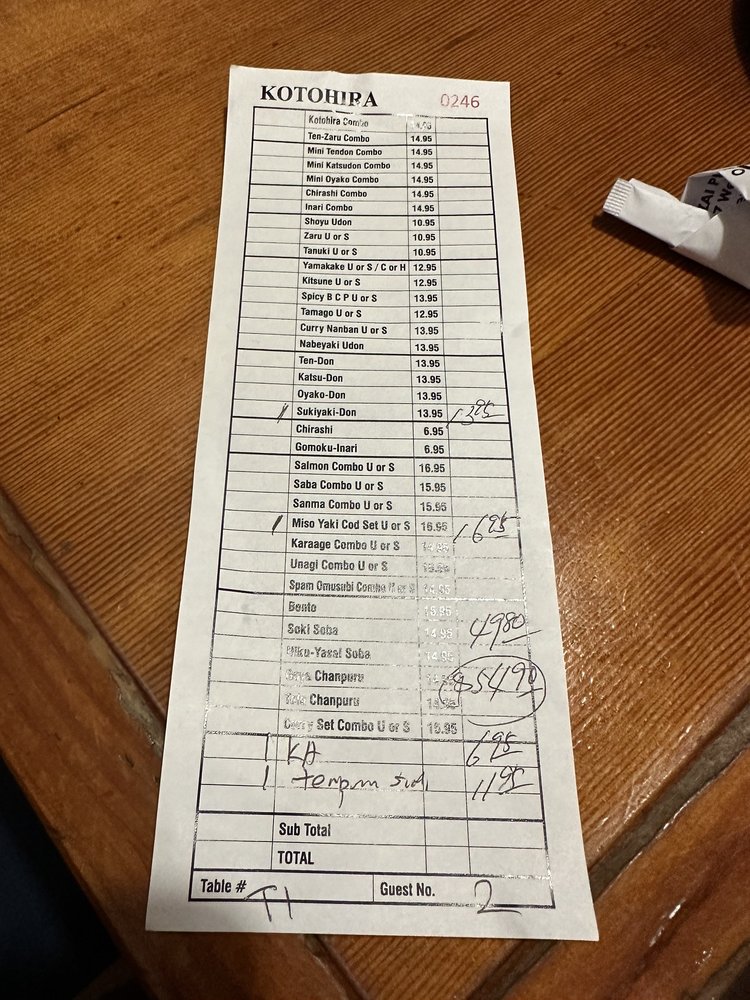 KOTOHIRA 0246
Kotohira Combo
Ten-Zaru Combo 14.95
Mini Tendon Combo 14.95
Mini Katsudon Combo 14.95
Mini Oyako Combo 14.95
Chirashi Combo 14.95
Inari Combo 14.95
Shoyu Udon 10.95
Zaru U or S 10.95
Tanuki U or S 10.95
Yamakake U or S / C or H 12.95
Kitsune U or S 12.95
Spicy B C P U or S 13.95
Tamago U or S 12.95
Curry Nanban U or S 13.95
Nabeyaki Udon 13.95
Ten-Don 13.95
Katsu-Don 13.95
Oyako-Don 13.95
1 Sukiyaki-Don 13.95 13 95
Chirashi 6.95
Gomoku-Inari 6.95
Salmon Combo U or S 16.95
Saba Combo U or S 15.95
Sanma Combo U or S 15.95
1 Miso Yaki Cod Set U or S 16.95 16 95
Karaage Combo U or S 14.95
Unagi Combo U or S
Spam Omusubi Combo U or S
Bento 15.95
Soki Soba 14.95 49 80
Niku-Yasai Soba 14.95
Goya Chanpuru $54 90
Tofu Chanpuru
Curry Set Combo U or S 15.95
1 KA 6 95
1 11 95
Sub Total
TOTAL
Table # T1 Guest No. 2